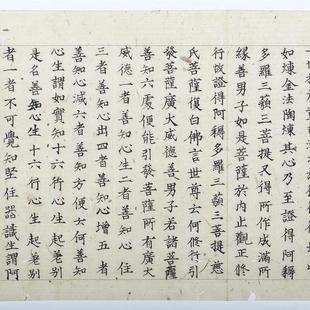 如煉金法陶煉其心乃至證得阿耨
多羅三藐三菩提又得所作成滿所
緣善男子如是菩薩於內止觀正修
行故證得阿耨多羅三藐三菩提慈
氏菩薩復白佛言世尊云何修行引
發菩薩廣大威德善男子若諸菩薩
善知六處便能引發菩薩所有廣大
威德一者善知心生二者善知心住
三者善知心出四者善知心增五者
善知心減六者善知方便云何善知
心生謂如實知十六行心生起差別
是名善知心生十六行心生起差別
者一者不可覺知堅住器識生謂阿